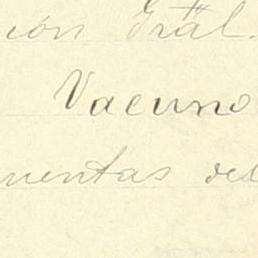 ión Gräl.
Vacuno
uentas del